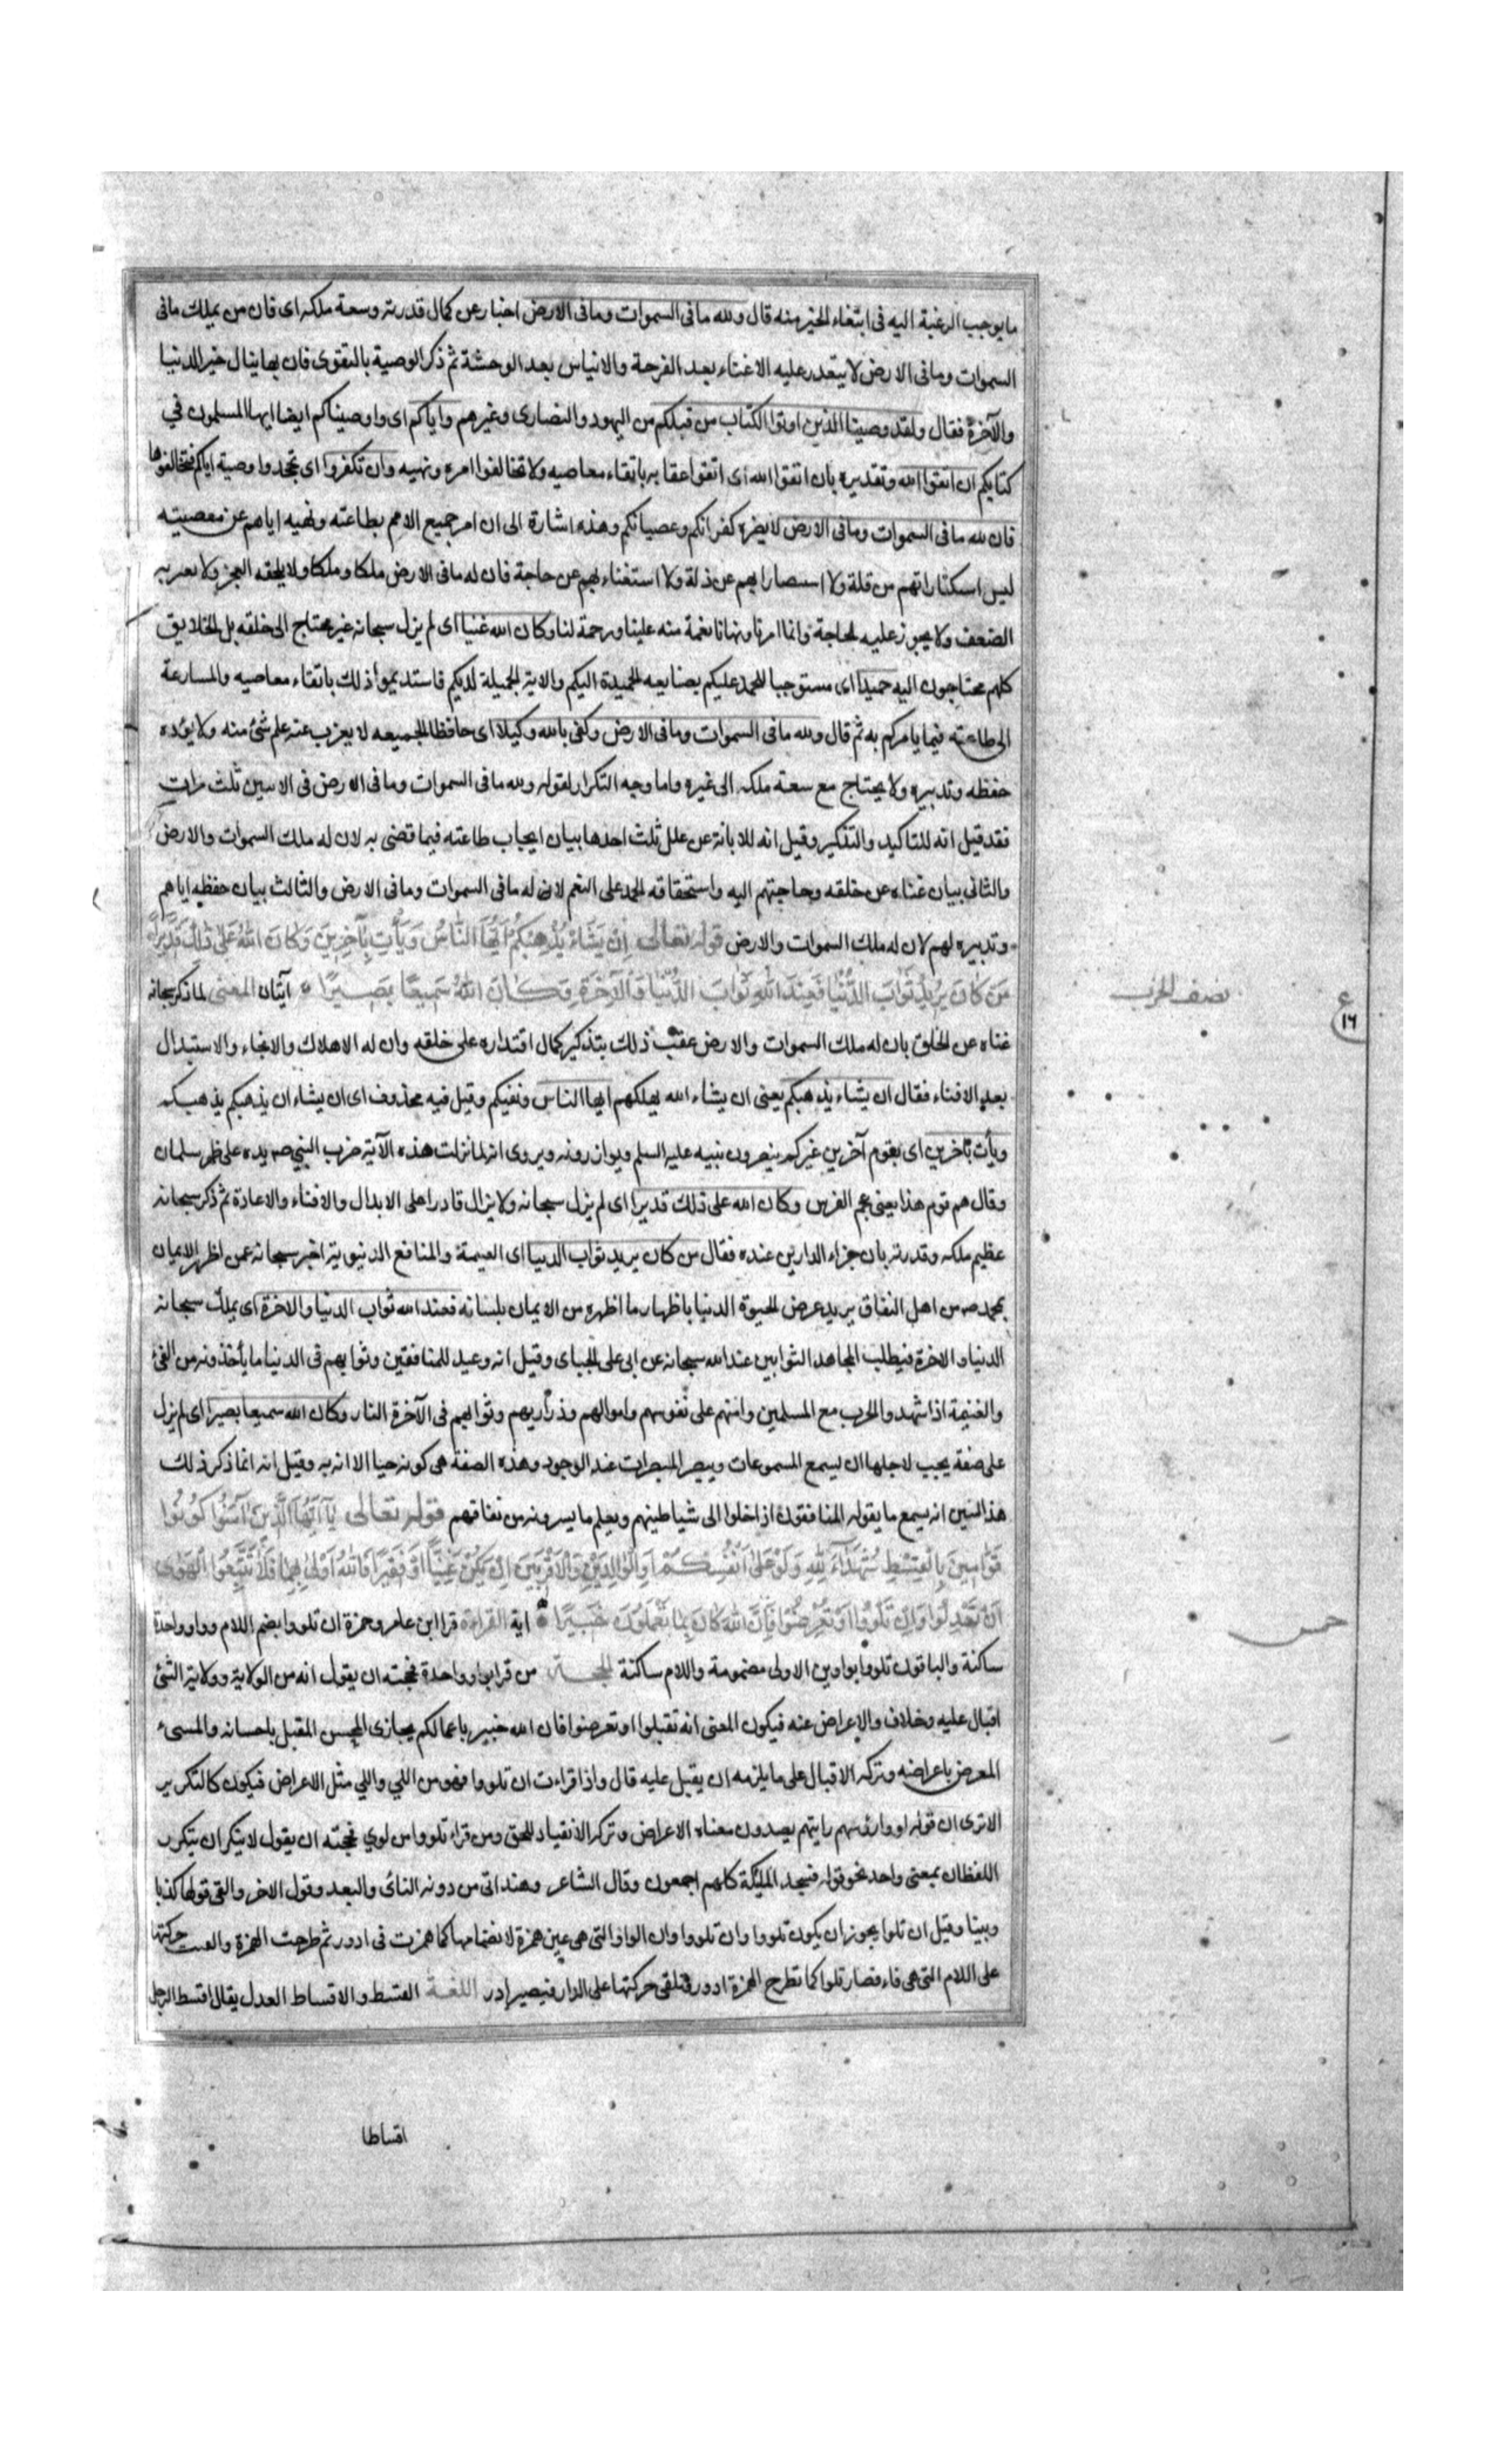 ما يوجب الرغبة اليه فى ابتغاء الخير منه قال ولله ما فى السموات وما فى الارض اخبار عن كمال قدرته وسعة ملكه اى فان من يملك ما فى
السموات وما فى الارض لا يتعذر عليه الاغناء بعد الفرحة والايناس بعد الوحشة ثم ذكر الوصية بالتقوى فان بها ينال خير الدنيا
والآخرة فقال ولقد وصينا الذين اوتوا الكتاب من قبلكم من اليهود والنصارى وغيرهم واياكم اى واوصيناكم ايضا ايها المسلمون في
كتابكم ان اتقوا الله وتقديره بان اتقوا الله اى اتقوا عقابه باتقاء معاصيه ولا تخالفوا امره ونهيه وان تكفروا اى تجحدوا وصيته اياكم فتخالفوها
فان لله ما فى السموات وما فى الارض لا يضره كفرانكم وعصيانكم وهذه اشارة الى ان امر جميع الامم بطاعته ونهيه اياهم عن معصيته
ليس استكثارا بهم من قلة ولا استنصارا بهم عن ذلة ولا استغناء بهم عن حاجة فان له ما فى الارض ملكا وملكا ولا يلحقه العجز ولا يعتريه
الضعف ولا يجوز عليه الحاجة وانما امرنا ونهانا نعمة منه علينا ورحمة لنا وكان الله غنيا اى لم يزل سبحانه غير محتاج الى خلقه بل الخلايق
كلهم محتاجون اليه حميدا اى مستوجبا للحمد عليكم بصنايعه الحميدة اليكم والايه الجميلة لديكم فاستديموا ذلك باتقاء معاصيه والمسارعة
الى طاعته فيما يامركم به ثم قال ولله ما فى السموات وما فى الارض وكفى بالله وكيلا اى حافظا لجميعه لا يعزب عنه علم شئ منه ولا يؤده
حفظه وتدبيره ولا يحتاج مع سعة ملكه الى غيره واما وجه التكرار لقوله ولله ما فى السموات وما فى الارض فى الايتين ثلث مرات
فقد قيل انه للتاكيد والتذكير وقيل انه للابانة عن علل ثلث احدها بيان ايجاب طاعته فيما قضى به لان له ملك السموات والارض
والثانى بيان غناه عن خلقه وحاجتهم اليه واستحقاقه الحمد على النعم لان له ما فى السموات وما فى الارض والثالث بيان حفظه اياهم
وتدبيره لهم لان له ملك السموات والارض قوله تعالى اِنْ يَشَأْ يُذْهِبْكُمْ اَيُّهَا النَّاسُ وَيَأْتِ بِآخَرِينَ وَكَانَ اللهُ عَلَى ذَلِكَ قَدِيرًا
مَنْ كَانَ يُرِيدُ ثَوَابَ الدُّنْيَا فَعِنْدَ اللهِ ثَوَابُ الدُّنْيَا وَالْآخِرَةِ وَكَانَ اللهُ سَمِيعًا بَصِيرًا آيتان المعنى لما ذكر سبحانه
نصف الحزب
ع
١٦
غناه عن الخلق بان له ملك السموات والارض عقب ذلك بتذكير كمال اقتداره على خلقه وان له الاهلاك والانجاء والاستبدال
بعد الافناء فقال ان يشاء يذهبكم يعنى ان يشاء الله يهلكهم ايها الناس ونفيكم وقيل فيه محذوف اى ان يشاء ان يذهبكم يذهبكم
ويأت بآخرين اى بقوم آخرين غيركم ينصرون نبيه عليه السلم ويوازرونه ويروى انه لما نزلت هذه الآية ضرب النبي ص يده على ظهر سلمان
وقال هم قوم هذا يعنى عجم الفرس وكان الله على ذلك قديرا اى لم يزل سبحانه ولا يزال قادرا على الابدال والافناء والاعادة ثم ذكر سبحانه
عظيم ملكه وقدرته بان جزاء الدارين عنده فقال من كان يريد ثواب الدنيا اى الغنيمة والمنافع الدنيوية اخبر سبحانه عمن اظهر الايمان
بمحمد ص من اهل النفاق يريد عرض الحيوة الدنيا باظهار ما اظهره من الايمان بلسانه فعند الله ثواب الدنيا والاخرة اى يملك سبحانه
الدنيا والاخرة فيطلب المجاهد الثوابين عند الله سبحانه عن ابى على الجبائ وقيل انه وعيد للمنافقين وثوابهم فى الدنيا ما يأخذونه من الفئ
والغنيمة اذا شهدوا الحرب مع المسلمين وامنهم على نفوسهم واموالهم وذراريهم وثوابهم فى الآخرة النار وكان الله سميعا بصيرا اى لم يزل
على صفة يجب لاجلها ان يسمع المسموعات ويبصر المبصرات عند الوجود وهذه الصفة هى كونه حيا لا افة به وقيل انه انما ذكر ذلك
هذا ليبين انه يسمع ما يقوله المنافقون اذا خلوا الى شياطينهم ويعلم ما يسرونه من نفاقهم قوله تعالى يَا اَيُّهَا الَّذِينَ آمَنُوا كُونُوا
قَوَّامِينَ بِالْقِسْطِ شُهَدَاءَ لِلّٰهِ وَلَوْ عَلَى اَنْفُسِكُمْ اَوِ الْوَالِدَيْنِ وَالْاَقْرَبِينَ اِنْ يَكُنْ غَنِيًّا اَوْ فَقِيرًا فَاللهُ اَوْلَى بِهِمَا فَلَا تَتَّبِعُوا الْهَوَى
اَنْ تَعْدِلُوا وَاِنْ تَلْوُوا اَوْ تُعْرِضُوا فَاِنَّ اللهَ كَانَ بِمَا تَعْمَلُونَ خَبِيرًا اية القراءة قرا ابن عامر وحمزة ان تلوا بضم اللام وواو واحدة
خمس
ساكنة والباقون تلووا بواوين الاولى مضمومة واللام ساكنة الحجة من قرا بواو واحدة فحجته ان يقول انه من الولاية وولاية الشئ
اقبال عليه وخلاف والاعراض عنه فيكون المعنى انه تقبلوا او تعرضوا فان الله خبير باعمالكم يجازى المحسن المقبل باحسانه والمسىء
المعرض باعراضه وتركه الاقبال على ما يلزمه ان يقبل عليه قال واذا قراءت ان تلووا فهو من اللي واللي مثل الاعراض فيكون كالتكرير
الا ترى ان قوله لووا رؤسهم رايتهم يصدون معناه الاعراض وترك الانقياد للحق ومن قراء تلووا من لوي فحجته ان يقول لا ينكر ان يتكرر
اللفظان بمعنى واحد نحو قوله فسجد المليكة كلهم اجمعون وقال الشاعر وهند اتى من دونه النائ والبعد وقول الاخر والفى قولها كذبا
ومينا وقيل ان تلوا يجوز ان يكون تلووا وان تلووا وان الواو التى هى عين همزة لانضمامها كما همزت فى ادور ثم طرحت الهمزة والقيت حركتها
على اللام التى هى فاء فصار تلوا كما تطرح الهمزة ادور فتلقى حركتها على الدال فيصير ادر اللغة القسط والاقساط العدل يقال اقسط الرجل
اقساطا